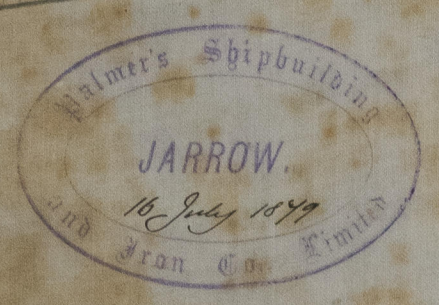 Palmer's Shipbuilding
JARROW.
16 July 1879
and Iron Co. Limited